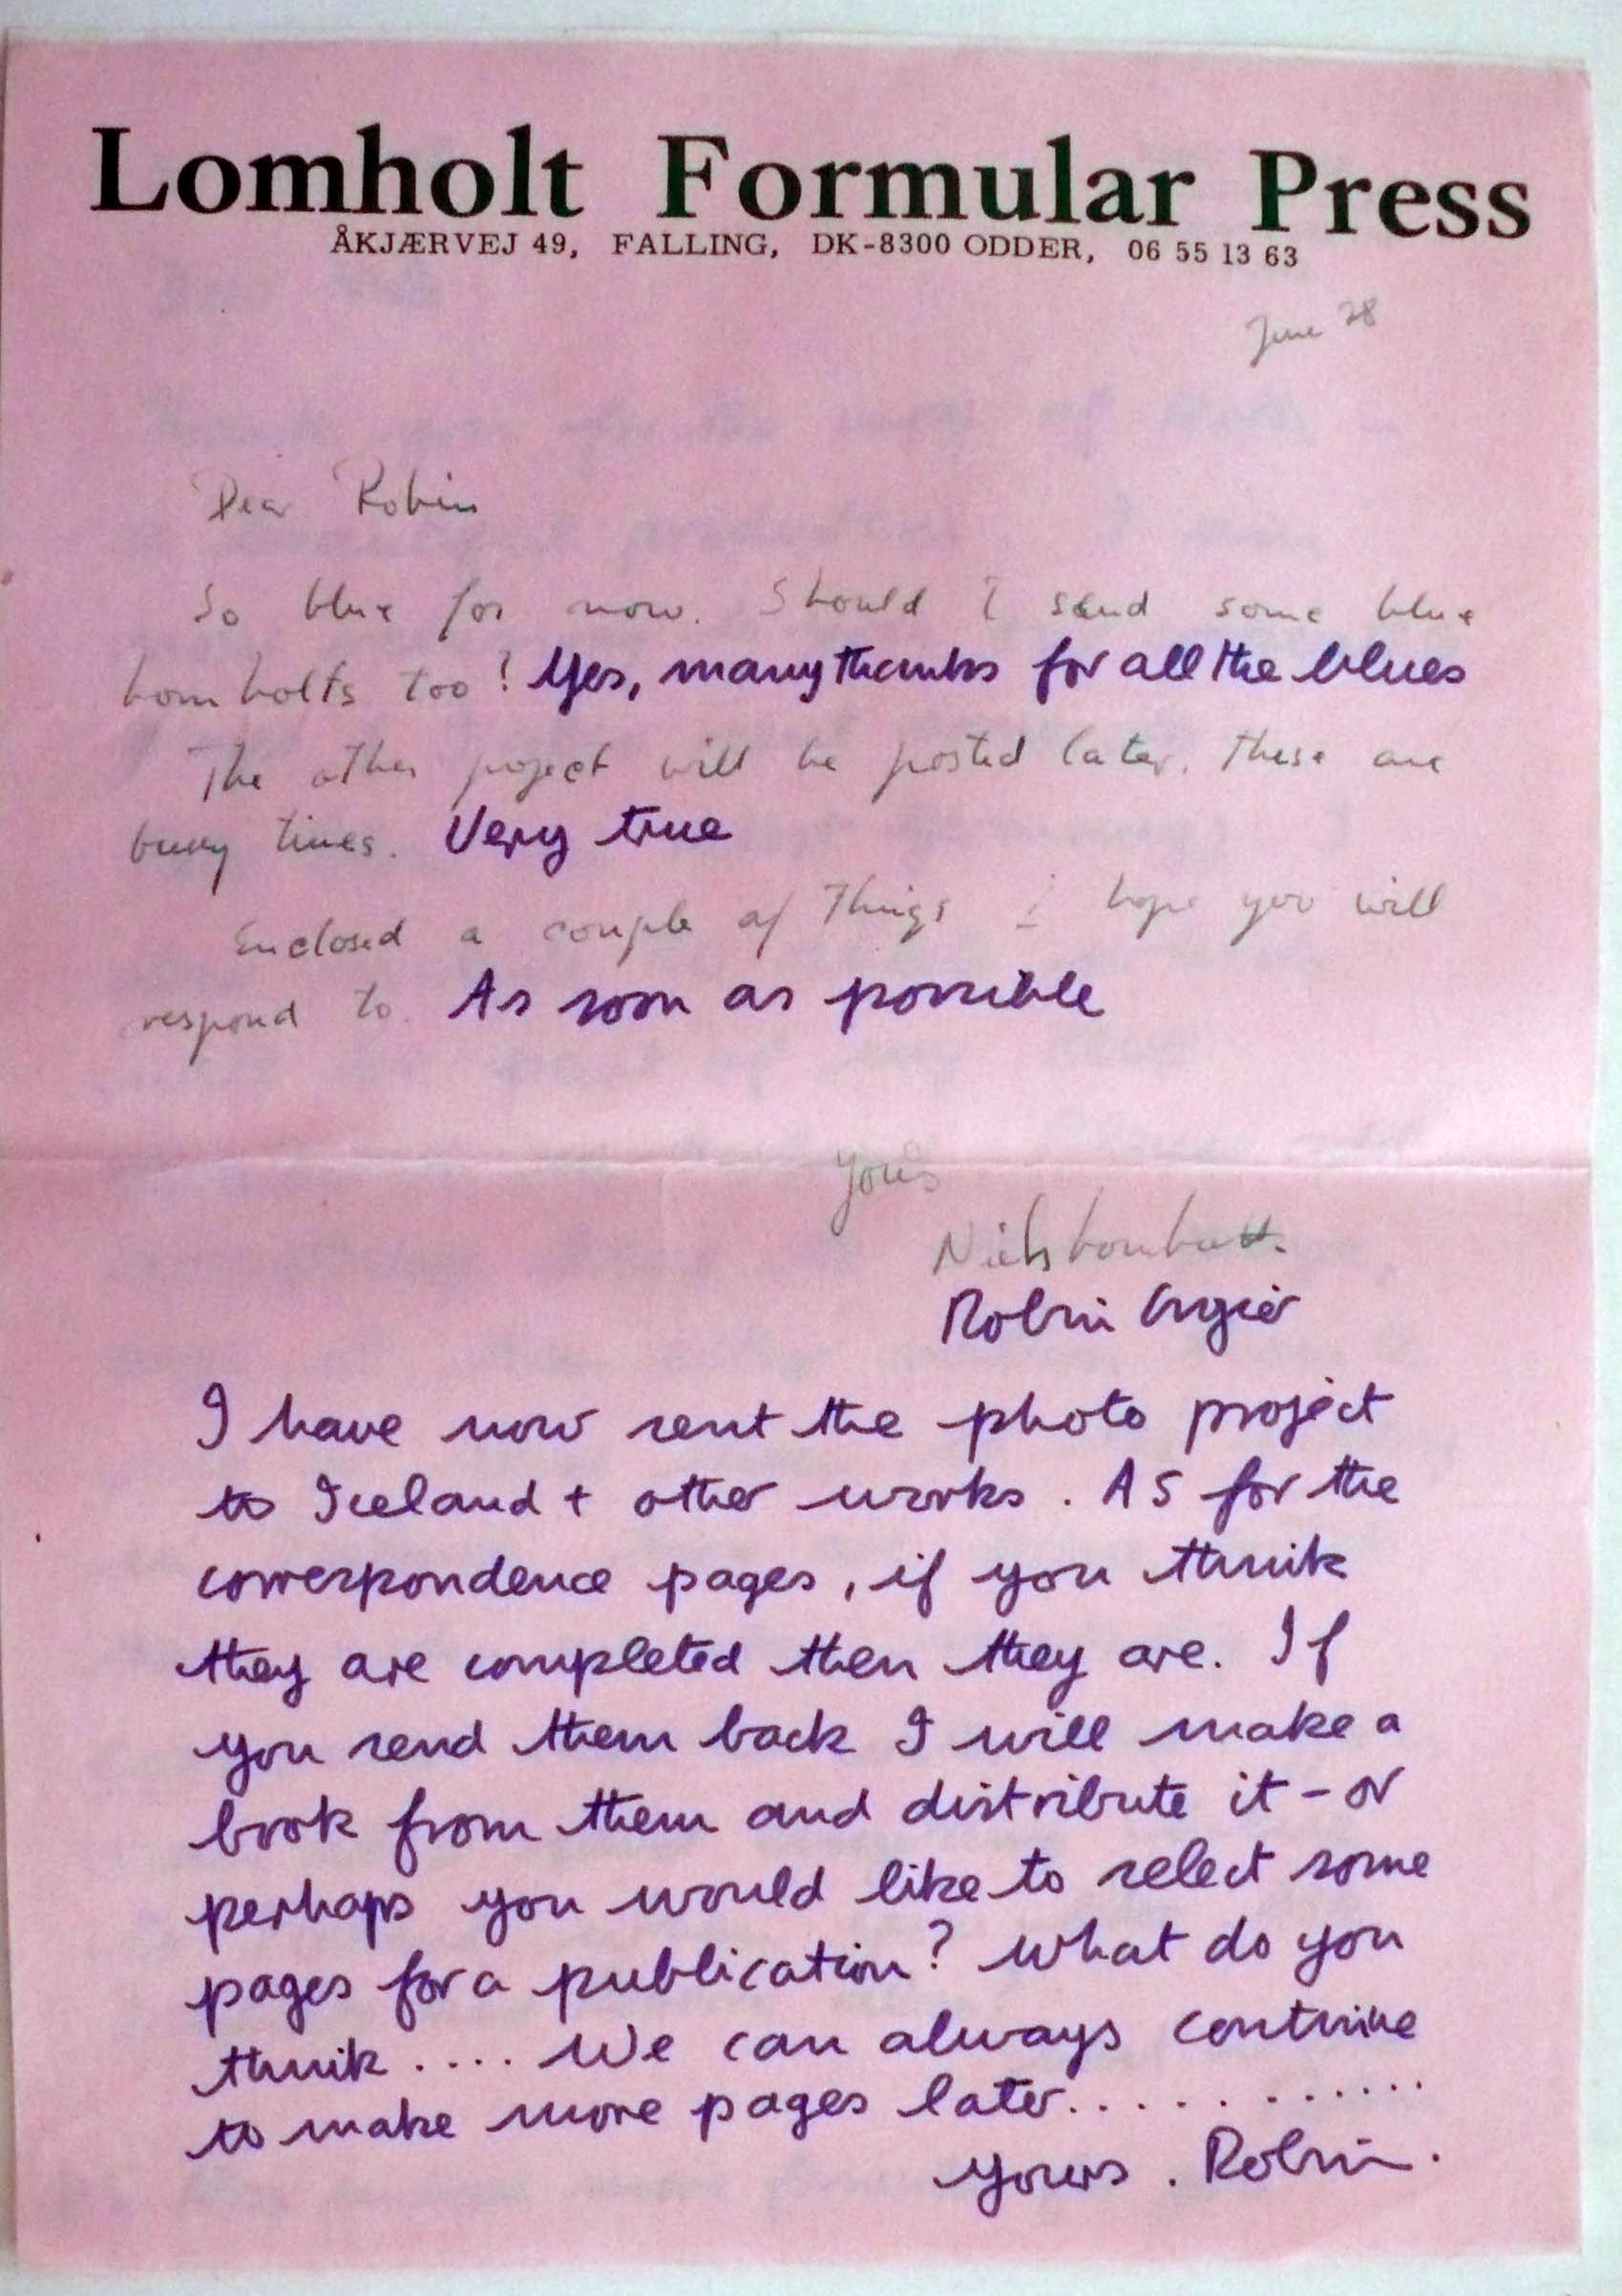 Lomholt Formular Press
ÅKJÆRVEJ 49, FALLING, DK-8300 ODDER, 06 55 13 63
June 28
Dear Robin
So blue for now. Should I send some blue
Lomholts too? Yes, many thanks for all the blues
The other project will be posted later. These are
busy times. Very true
Enclosed a couple of things I hope you will
respond to. As soon as possible
Yours
Niels Lomholt.
Robin Crozier
I have now sent the photo project
to Iceland + other works. AS for the
correspondence pages, if you think
they are completed then they are. If
you send them back I will make a
book from them and distribute it - or
perhaps you would like to select some
pages for a publication? What do you
think.... We can always continue
to make more pages later............
yours. Robin.